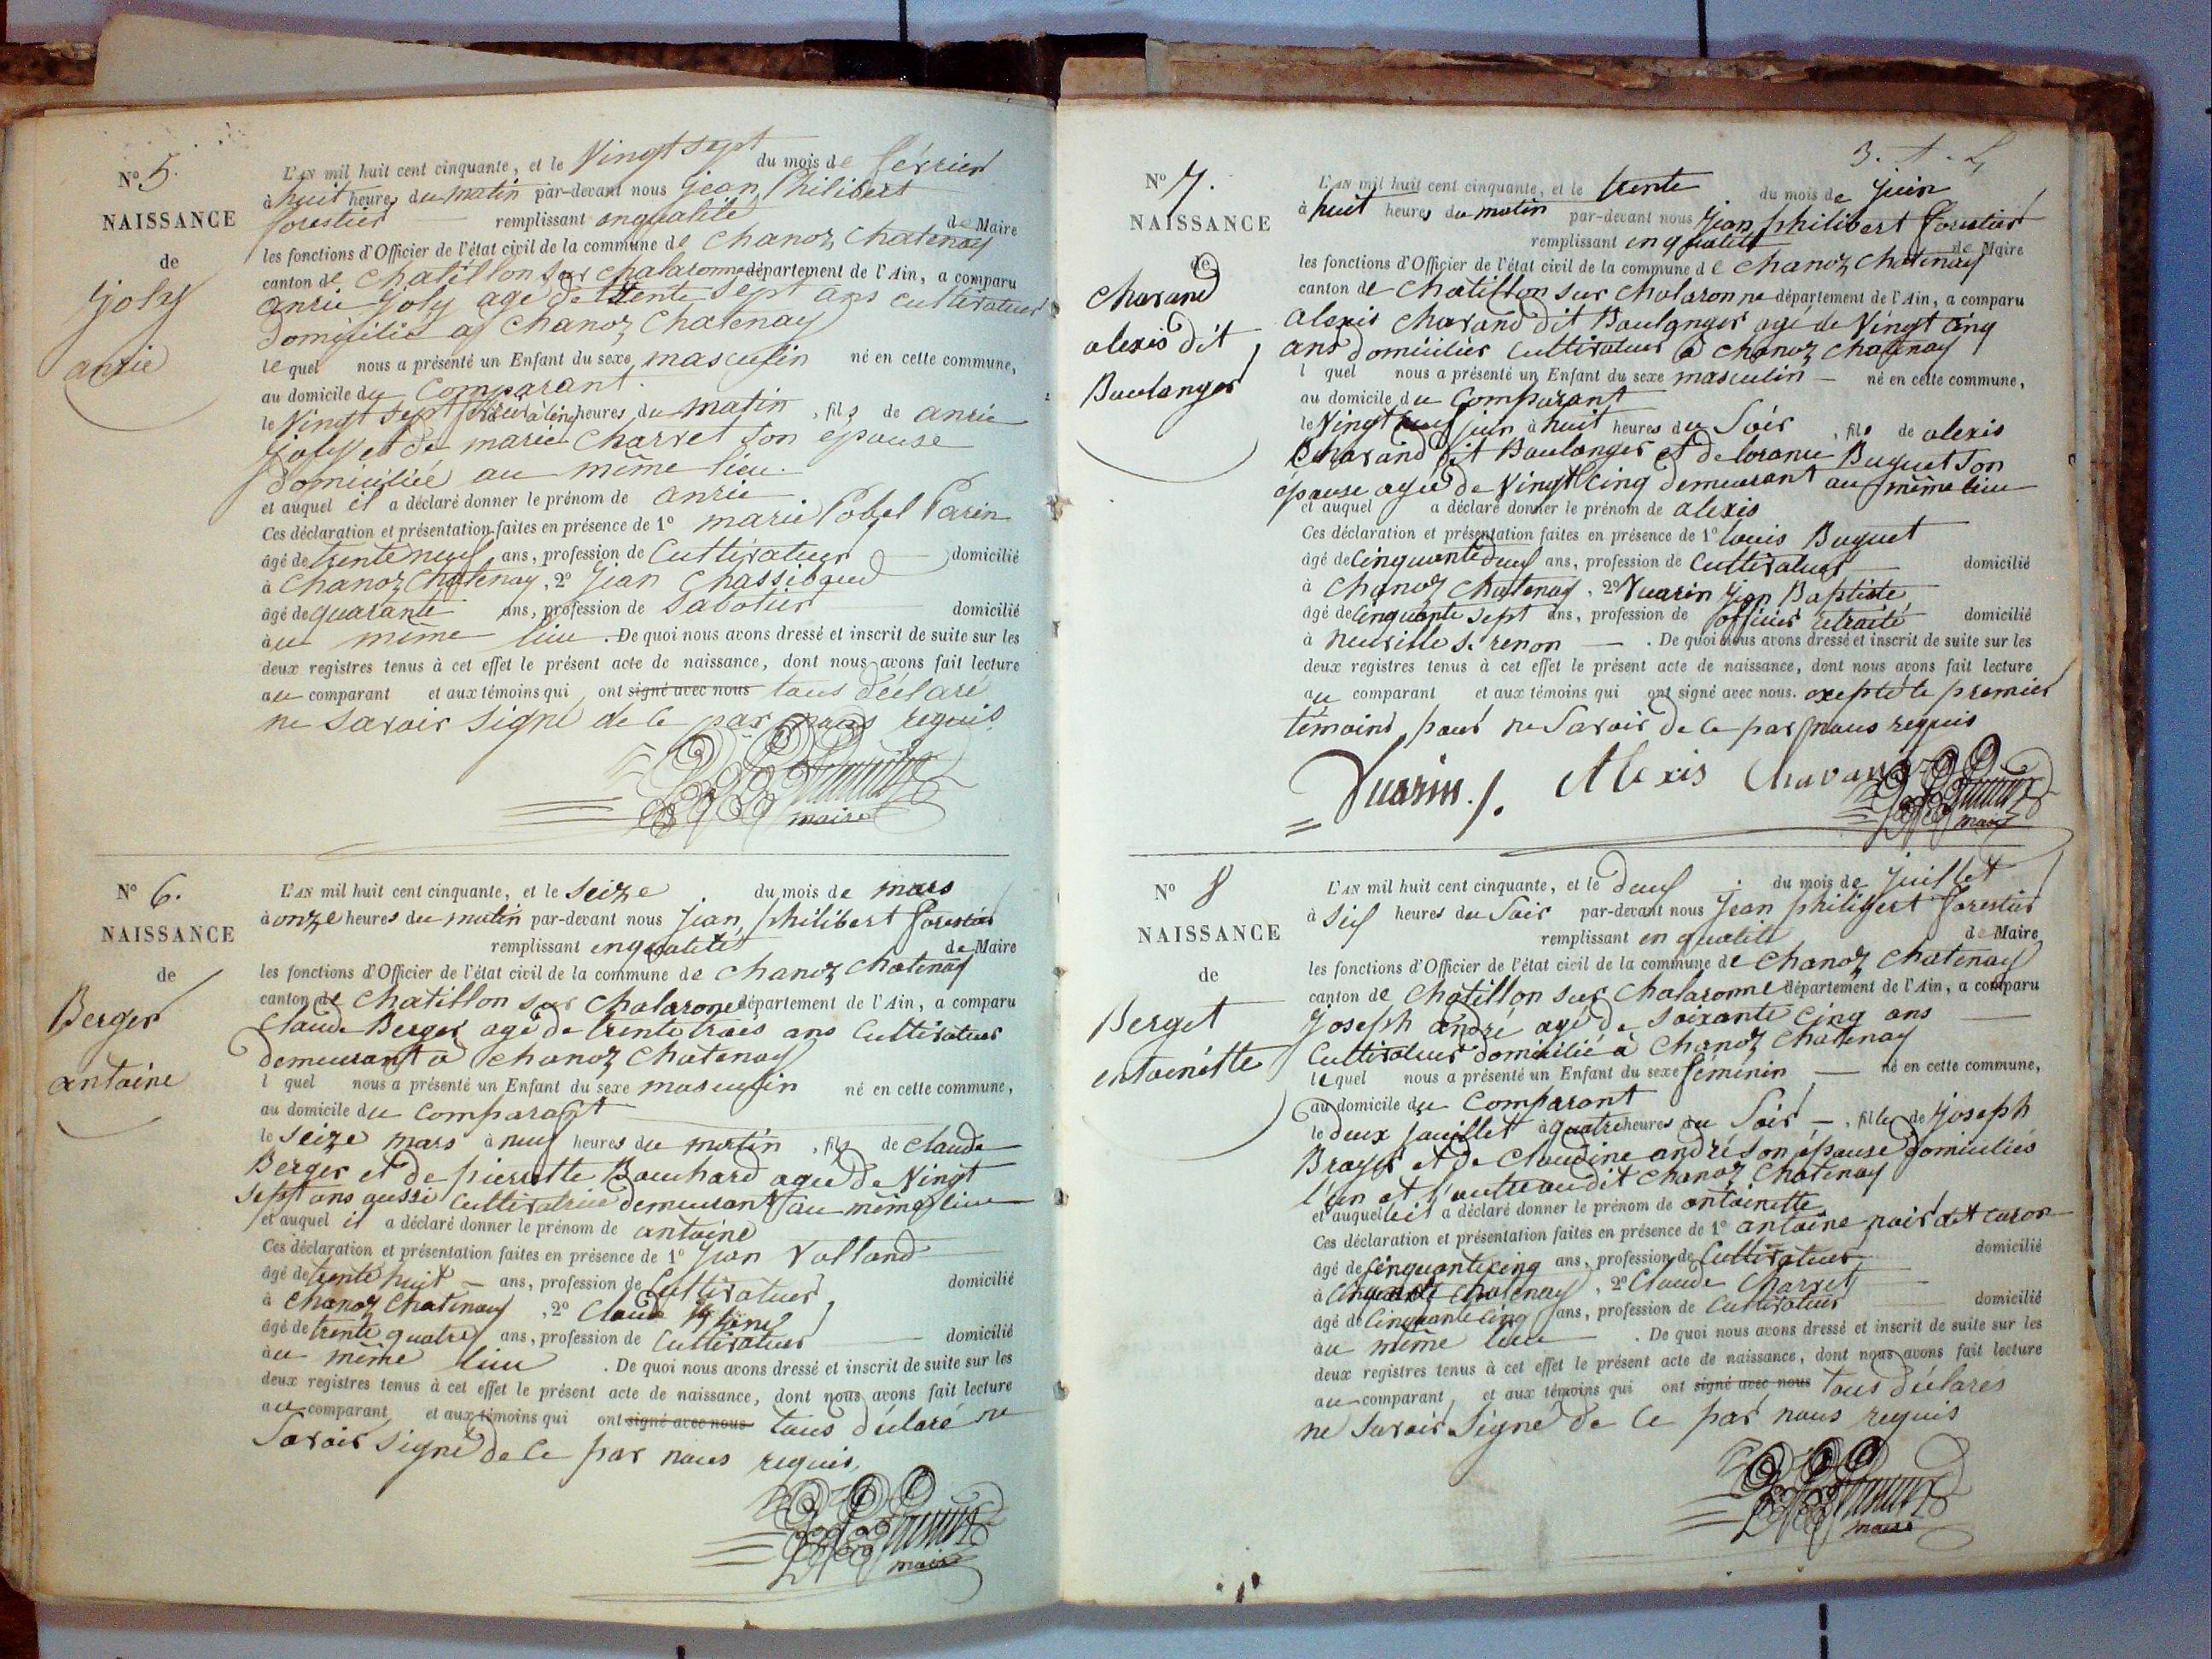 N° 5.
NAISSANCE
de
joly
anrie
L'AN mil huit cent cinquante, et le Vingt sept du mois de février
à huit heures du matin par-devant nous jean Philibert
forestier remplissant enqualité de Maire
les fonctions d'Officier de l'état civil de la commune de chanoz chatenay
canton de chatillon sur chalaronne département de l'Ain, a comparu
anrie joly agé de trente sept ans cultivateur
domicilié a chanoz chatenay
lequel nous a présenté un Enfant du sexe masculin né en cette commune,
au domicile du Comparant
le Vingt sept à cinq heures du matin, fils de anrie
joly et de marie charvet son épouse
domiciliée au même lieu.
et auquel il a déclaré donner le prénom de anrie
Ces déclaration et présentation faites en présence de 1° marie Pobel Parin
âgé de trente neuf ans, profession de Cultivateur domicilié
à chanoz chatenay, 2° jean
âgé de quarante ans, profession de Sabotier domicilié
au même lieu. De quoi nous avons dressé et inscrit de suite sur les
deux registres tenus à cet effet le présent acte de naissance, dont nous avons fait lecture
au comparant et aux témoins qui ont signé avec nous tous déclaré
ne savoir signé de ce par nous requis
maire
N° 6.
NAISSANCE
de
Berger
antoine
L'AN mil huit cent cinquante, et le seize du mois de mars
à onze heures du matin par-devant nous jean philibert forestier
remplissant enqualité de Maire
les fonctions d'Officier de l'état civil de la commune de chanoz chatenay
canton de chatillon sur chalarone département de l'Ain, a comparu
claude Berger agé de trente trois ans Cultivateur
demeurant a chanoz chatenay
l quel nous a présenté un Enfant du sexe masculin né en cette commune,
au domicile du comparant
le seize mars à neuf heures du matin, fils de claude
Berger et de pierrette Bouchard agée de Vingt
sept ans aussi cultivatrice demeurant au même lieu
et auquel il a déclaré donner le prénom de antoine
Ces déclaration et présentation faites en présence de 1° jean Volland
âgé de trente huit ans, profession de Cultivateur domicilié
à chanoz chatenay, 2° Claude
âgé de trente quatre ans, profession de Cultivateur domicilié
au même lieu. De quoi nous avons dressé et inscrit de suite sur les
deux registres tenus à cet effet le présent acte de naissance, dont nous avons fait lecture
au comparant et aux témoins qui ont signé avec nous tous déclaré ne
savoir signé de ce par nous requis
maire
N° 7.
NAISSANCE
de
charand
alexis dit
Boulanger
L'AN mil huit cent cinquante, et le trente du mois de juin
à huit heures du matin par-devant nous jean philibert forestier
remplissant en qualité de Maire
les fonctions d'Officier de l'état civil de la commune de chanoz chatenay
canton de chatillon sur chalaronne département de l'Ain, a comparu
alexis charand dit Boulanger agé de Vingt cinq
ans domicilier cultivateur à chanoz chatenay
l quel nous a présenté un Enfant du sexe masculin né en cette commune,
au domicile du Comparant
le Vingt neuf juin à huit heures du Soir, fils de alexis
charand dit Boulanger et de Buguet son
épouse agée de Vingt cinq demeurant au même lieu
et auquel a déclaré donner le prénom de alexis
Ces déclaration et présentation faites en présence de 1° louis Buguet
âgé de cinquante deux ans, profession de Cultivateur domicilié
à chanoz chatenay, 2° Vuarin jean Baptiste
âgé de cinquante sept ans, profession de officier retraité domicilié
à neuville s. renon. De quoi nous avons dressé et inscrit de suite sur les
deux registres tenus à cet effet le présent acte de naissance, dont nous avons fait lecture
au comparant et aux témoins qui ont signé avec nous. excepté le premier
témoins pour ne Savoir de ce par nous requis
Vuarin. Alexis Chavan
maire
N° 8
NAISSANCE
de
Berget
entoinette
L'AN mil huit cent cinquante, et le deux du mois de juillet
à six heures du Soir par-devant nous jean philibert forestier
remplissant en qualité de Maire
les fonctions d'Officier de l'état civil de la commune de chanoz chatenay
canton de chatillon sur chalaronne département de l'Ain, a comparu
joseph andré agé de soixante cinq ans
Cultivateur domicilié à chanoz chatenay
lequel nous a présenté un Enfant du sexe féminin né en cette commune,
au domicile du Comparant
le deux jouillet à quatre heures du Soir, fille de joseph
et de Claudine andré son épouse domiciliés
l'un et l'autre audit chanoz chatenay
et auquel il a déclaré donner le prénom de antoinette
Ces déclaration et présentation faites en présence de 1° antoine noir dit caron
âgé de cinquante cinq ans, profession de Cultivateur domicilié
à chatenay, 2° Claude Charvet
âgé de cinquante cinq ans, profession de cultivateur domicilié
au même lieu. De quoi nous avons dressé et inscrit de suite sur les
deux registres tenus à cet effet le présent acte de naissance, dont nous avons fait lecture
au comparant et aux témoins qui ont signé avec nous tous déclarés
ne savoir signé de ce par nous requis
maire